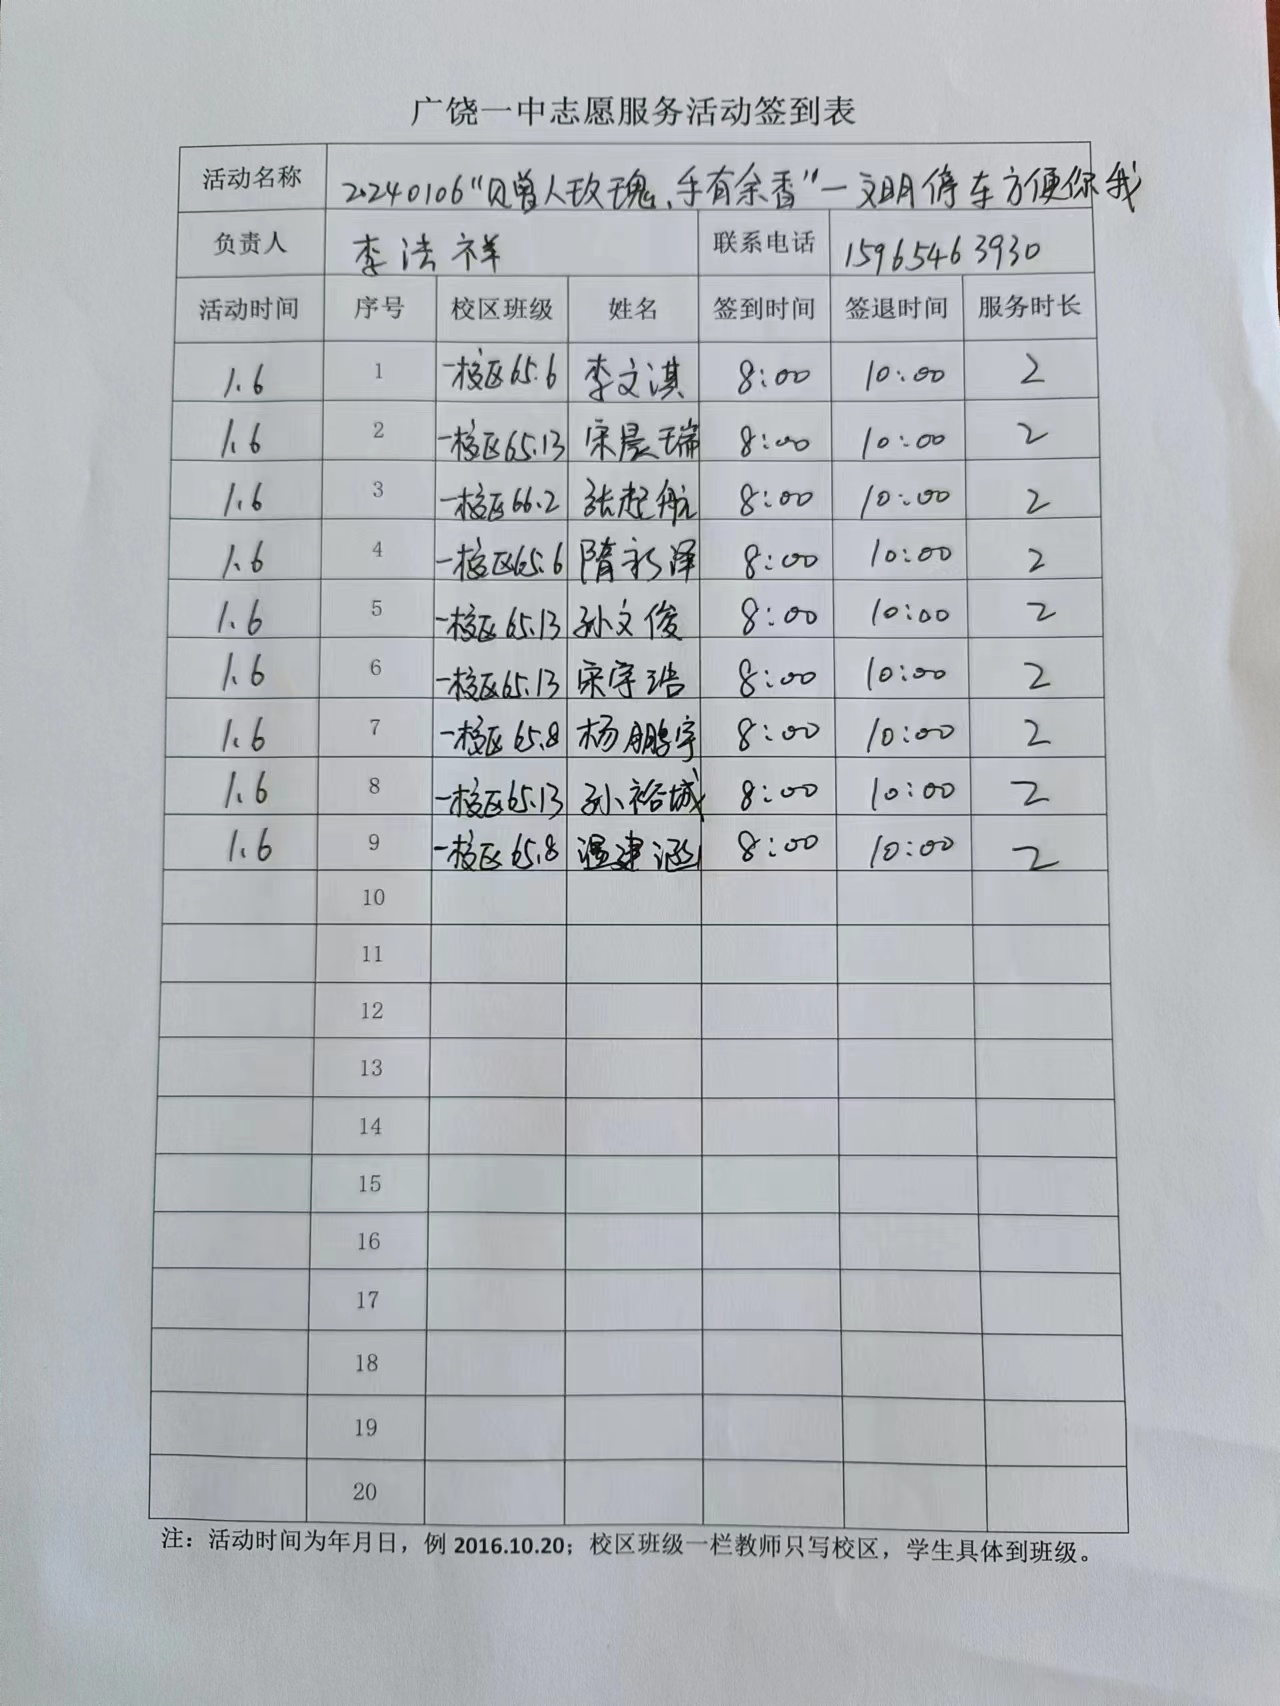 广饶一中志愿服务活动签到表
活动名称 20240106“赠人玫瑰、手有余香”—文明停车方便你我
负责人 李洁祥 联系电话 15965463930
活动时间 序号 校区班级 姓名 签到时间 签退时间 服务时长
1.6 1 一校区65.6 李文淇 8:00 10:00 2
1.6 2 一校区65.13 宋晨瑞 8:00 10:00 2
1.6 3 一校区66.2 张起航 8:00 10:00 2
1.6 4 一校区65.6 隋永泽 8:00 10:00 2
1.6 5 一校区65.13 孙文俊 8:00 10:00 2
1.6 6 一校区65.13 宋宇浩 8:00 10:00 2
1.6 7 一校区65.8 杨鹏宇 8:00 10:00 2
1.6 8 一校区65.13 孙裕城 8:00 10:00 2
1.6 9 一校区65.8 温建涵 8:00 10:00 2
10
11
12
13
14
15
16
17
18
19
20
注：活动时间为年月日，例 2016.10.20；校区班级一栏教师只写校区，学生具体到班级。